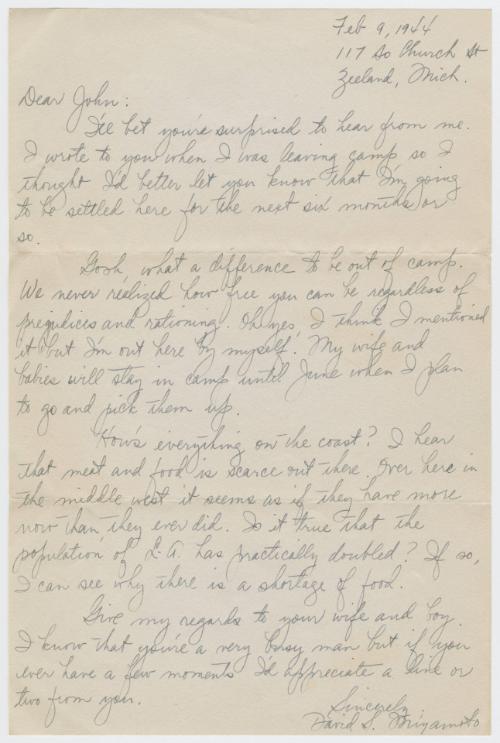 Feb 9, 1944
117 So Church St
Zeeland, Mich.
Dear John:
I'll bet you're surprised to hear from me.
I wrote to you when I was leaving camp so I
thought I'd better let you know that I'm going
to be settled here for the next six months or
so.
Gosh, what a difference to be out of camp.
We never realized how free you can be regardless of
prejudices and rationing. Oh yes, I think I mentioned
it but I'm out here by myself. My wife and
babies will stay in camp until June when I plan
to go and pick them up.
How's everything on the coast? I hear
that meat and food is scarce out there. Over here in
the middle west it seems as if they have more
now than they ever did. Is it true that the
population of L.A. has practically doubled? If so,
I can see why there is a shortage of food.
Give my regards to your wife and boy.
I know that you're a very busy man but if you
ever have a few moments I'd appreciate a line or
two from you.
Sincerely
David S. Miyamoto